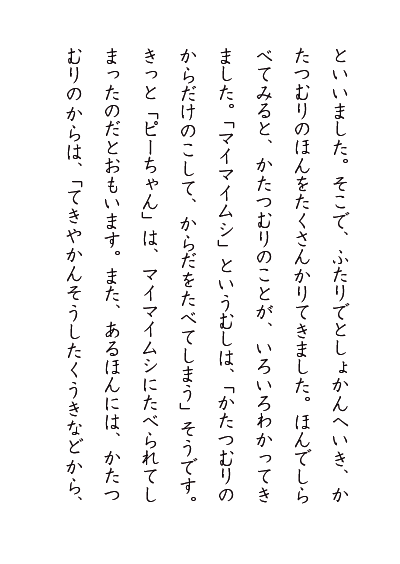 といいました。そこで、ふたりでとしょかんへいき、か
たつむりのほんをたくさんかりてきました。ほんでしら
べてみると、かたつむりのことが、いろいろわかってき
ました。「マイマイムシ」というむしは、「かたつむりの
からだけのこして、からだをたべてしまう」そうです。
きっと「ピーちゃん」は、マイマイムシにたべられてし
まったのだとおもいます。また、あるほんには、かたつ
むりのからは、「てきやかんそうしたくうきなどから、